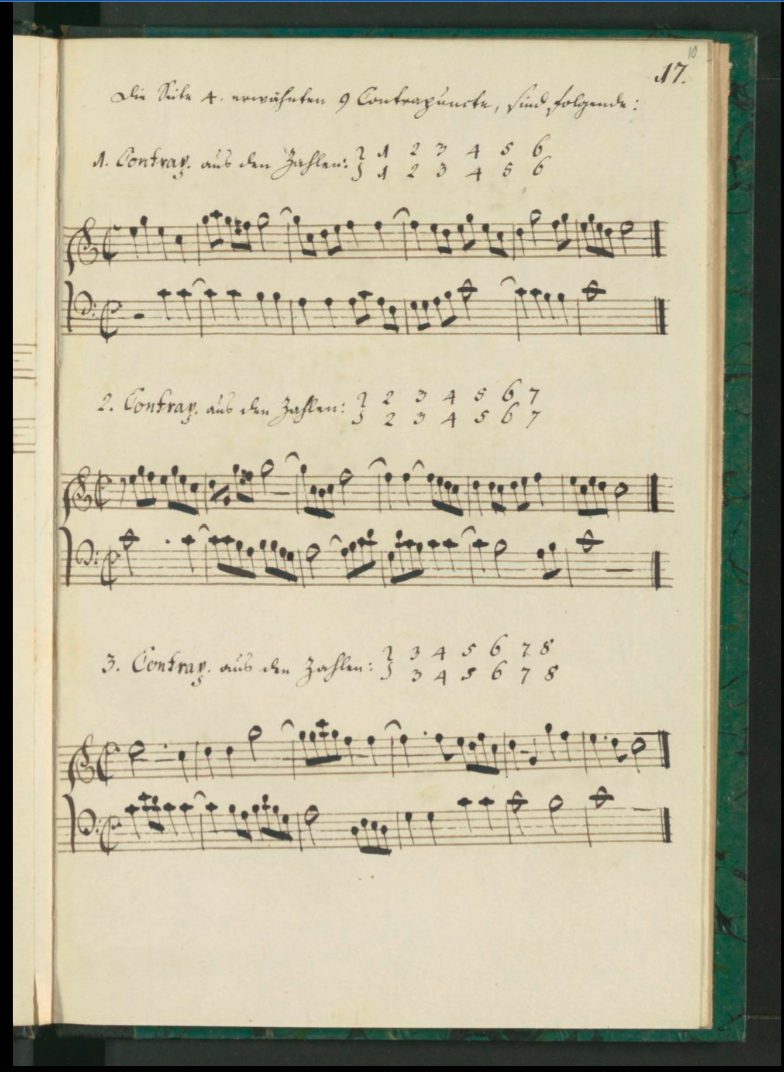 10
17.
Die Seite 4. erwähnten 9 Contrapuncte, sind folgende:
1. Contrap. aus den Zahlen: { 1 2 3 4 5 6
1 2 3 4 5 6
2. Contrap. aus den Zahlen: { 2 3 4 5 6 7
2 3 4 5 6 7
3. Contrap. aus den Zahlen: { 3 4 5 6 7 8
3 4 5 6 7 8